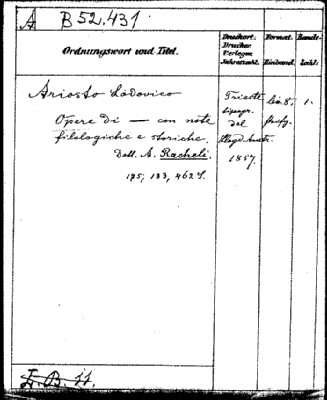 A B 52.431
Ordnungswort und Titel.
Druckort. Drucker Verleger. Jahreszahl.
Format. Einband.
Bandezahl:
Ariosto Lodovico
Opere di — con note
filologiche e storiche.
Dott. A. Racheli.
175, 183, 462 S.
Trieste
tipogr.
del
Lloyd Austr.
1857.
lex. 8,
1.
L. B. 11.